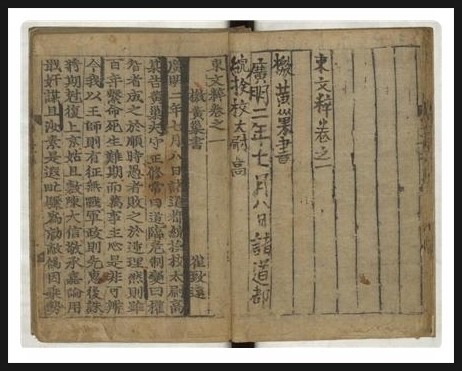 東文粹卷之一
檄黃巢書
廣明二年七月八日諸道都
統撿校太尉高
東文粹卷之一
檄黃巢書 崔致遠
廣明二年七月八日諸道都統撿校太尉高
某告黃巢夫守正修常曰道臨危制變曰權
智者成之於順時愚者敗之於逆理然則雖
百年繫命死生難期而萬事主心是非可辨
今我以王師則有征無戰軍政則先惠後誅
將期剋復上京固且敷陳大信敬承嘉諭用
戢奸謀且汝素是遐甿驟爲勍敵偶因乘勢